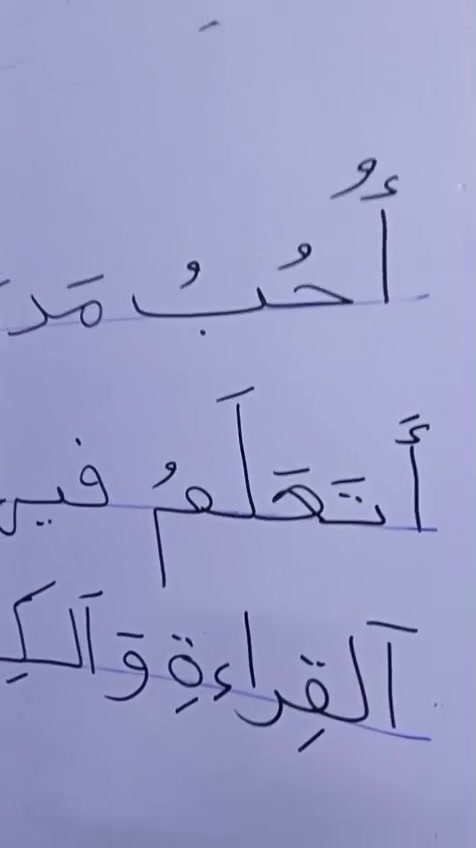 أُحُبُ مَدَ
أَتَعَلَمُ في
اَلقِراءةِ وَاَلكِ